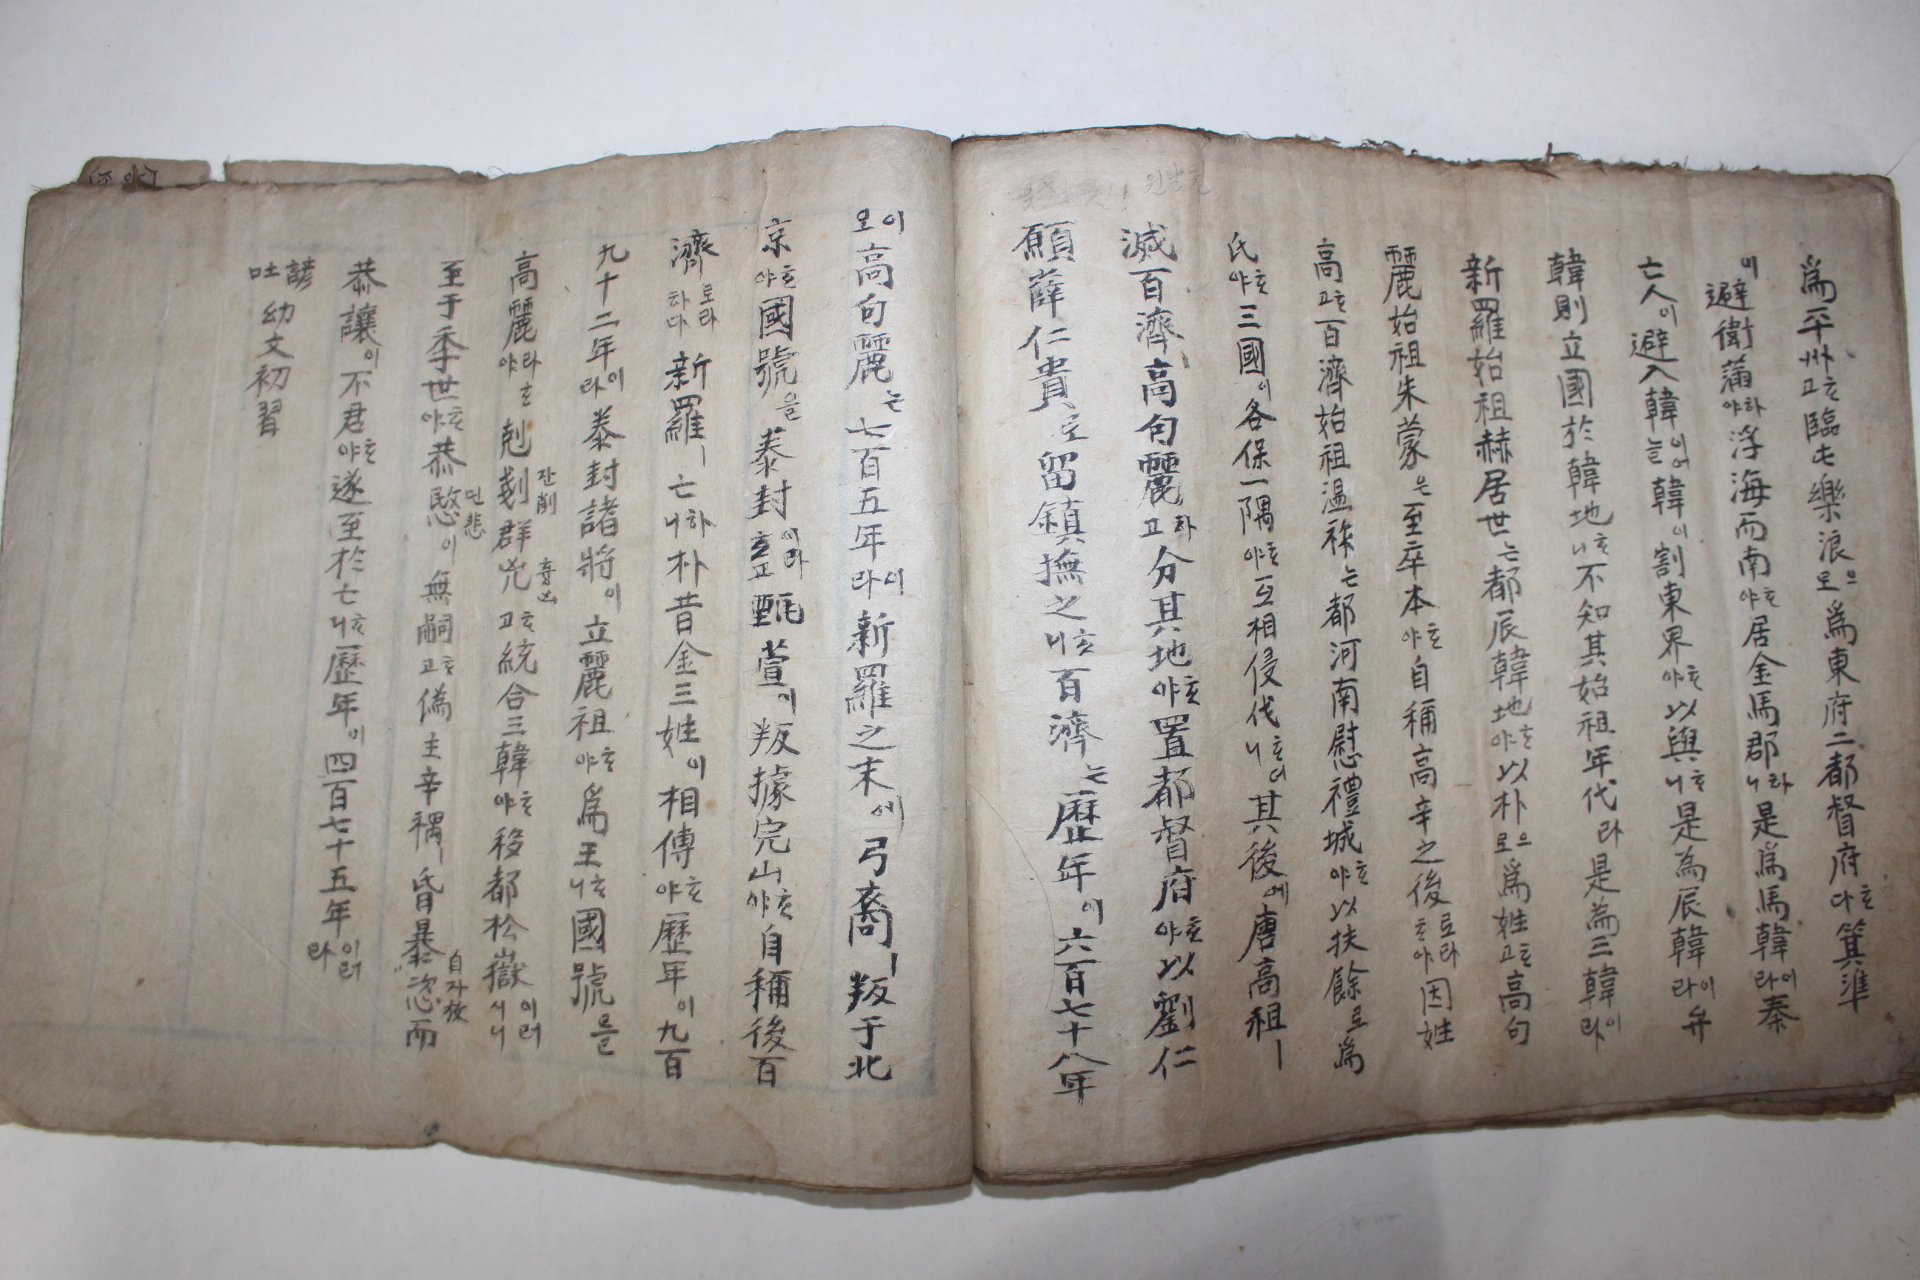 爲平州고호臨屯樂浪으로爲東府二都督府다호箕準
이避衛蒲야하浮海而南야호居金馬郡니라是爲馬韓라이秦
亡人이避入韓이어늘韓이割東界야호以與니호是爲辰韓라이弁
韓則立國於韓地니호不知其始祖年代라是爲三韓라이
新羅始祖赫居世는都辰韓地야호以朴로으爲姓고호高句
麗始祖朱蒙은至卒本야호自稱高辛之後로라호야因姓
高고호百濟始祖温祚는都河南慰禮城야호以扶餘로爲
氏야호三國이各保一隅야호互相侵伐니호더其後에唐高祖ㅣ
滅百濟高句麗고하分其地야호置都督府야호以劉仁
願薛仁貴로留鎮撫之니호百濟는歷年이六百七十八年
오이高句麗는七百五年라이新羅之末에弓裔ㅣ叛于北
京야호國號을泰封이라호고甄萱이叛據完山야호自稱後百
濟로라하다新羅ㅣ亡니하朴昔金三姓이相傳야호歷年이九百
九十二年라이泰封諸將이立麗祖야호爲王니호國號을
高麗라호야剋剗잔削群兇흉凶고호統合三韓야호移都松嶽이러시니
至于季世야호恭愍민悲이無嗣고호僞主辛禑ㅣ昏暴恣自자放而
恭讓이不君야호遂至於亡니호歷年이四百七十五年이러라
諺吐 幼文初習